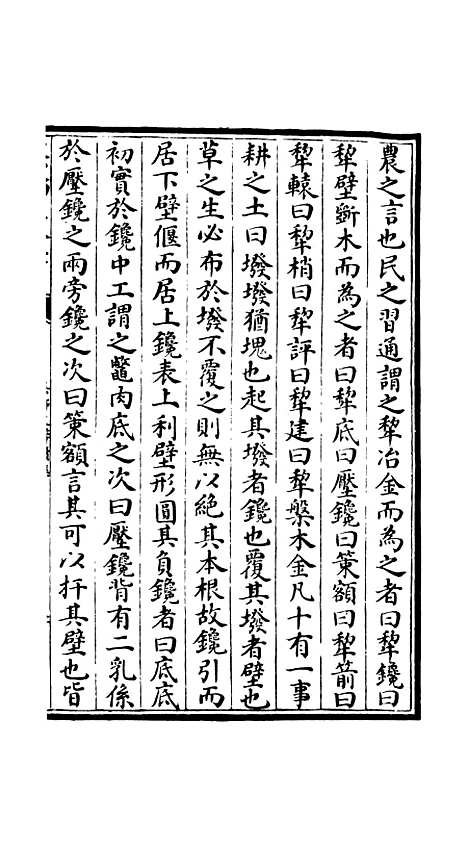 農之言也民之習通謂之犂冶金而為之者曰犂鑱曰
犂壁斲木而為之者曰犂底曰壓鑱曰策額曰犂箭曰
犂轅曰犂梢曰犂評曰犂建曰犂槃木金凡十有一事
耕之土曰墢墢猶塊也起其墢者鑱也覆其墢者壁也
草之生必布於墢不覆之則無以絶其本根故鑱引而
居下壁偃而居上鑱表上利壁形圓其負鑱者曰底底
初實於鑱中工謂之鼈肉底之次曰壓鑱背有二乳係
於壓鑱之兩旁鑱之次曰策額言其可以扞其壁也皆